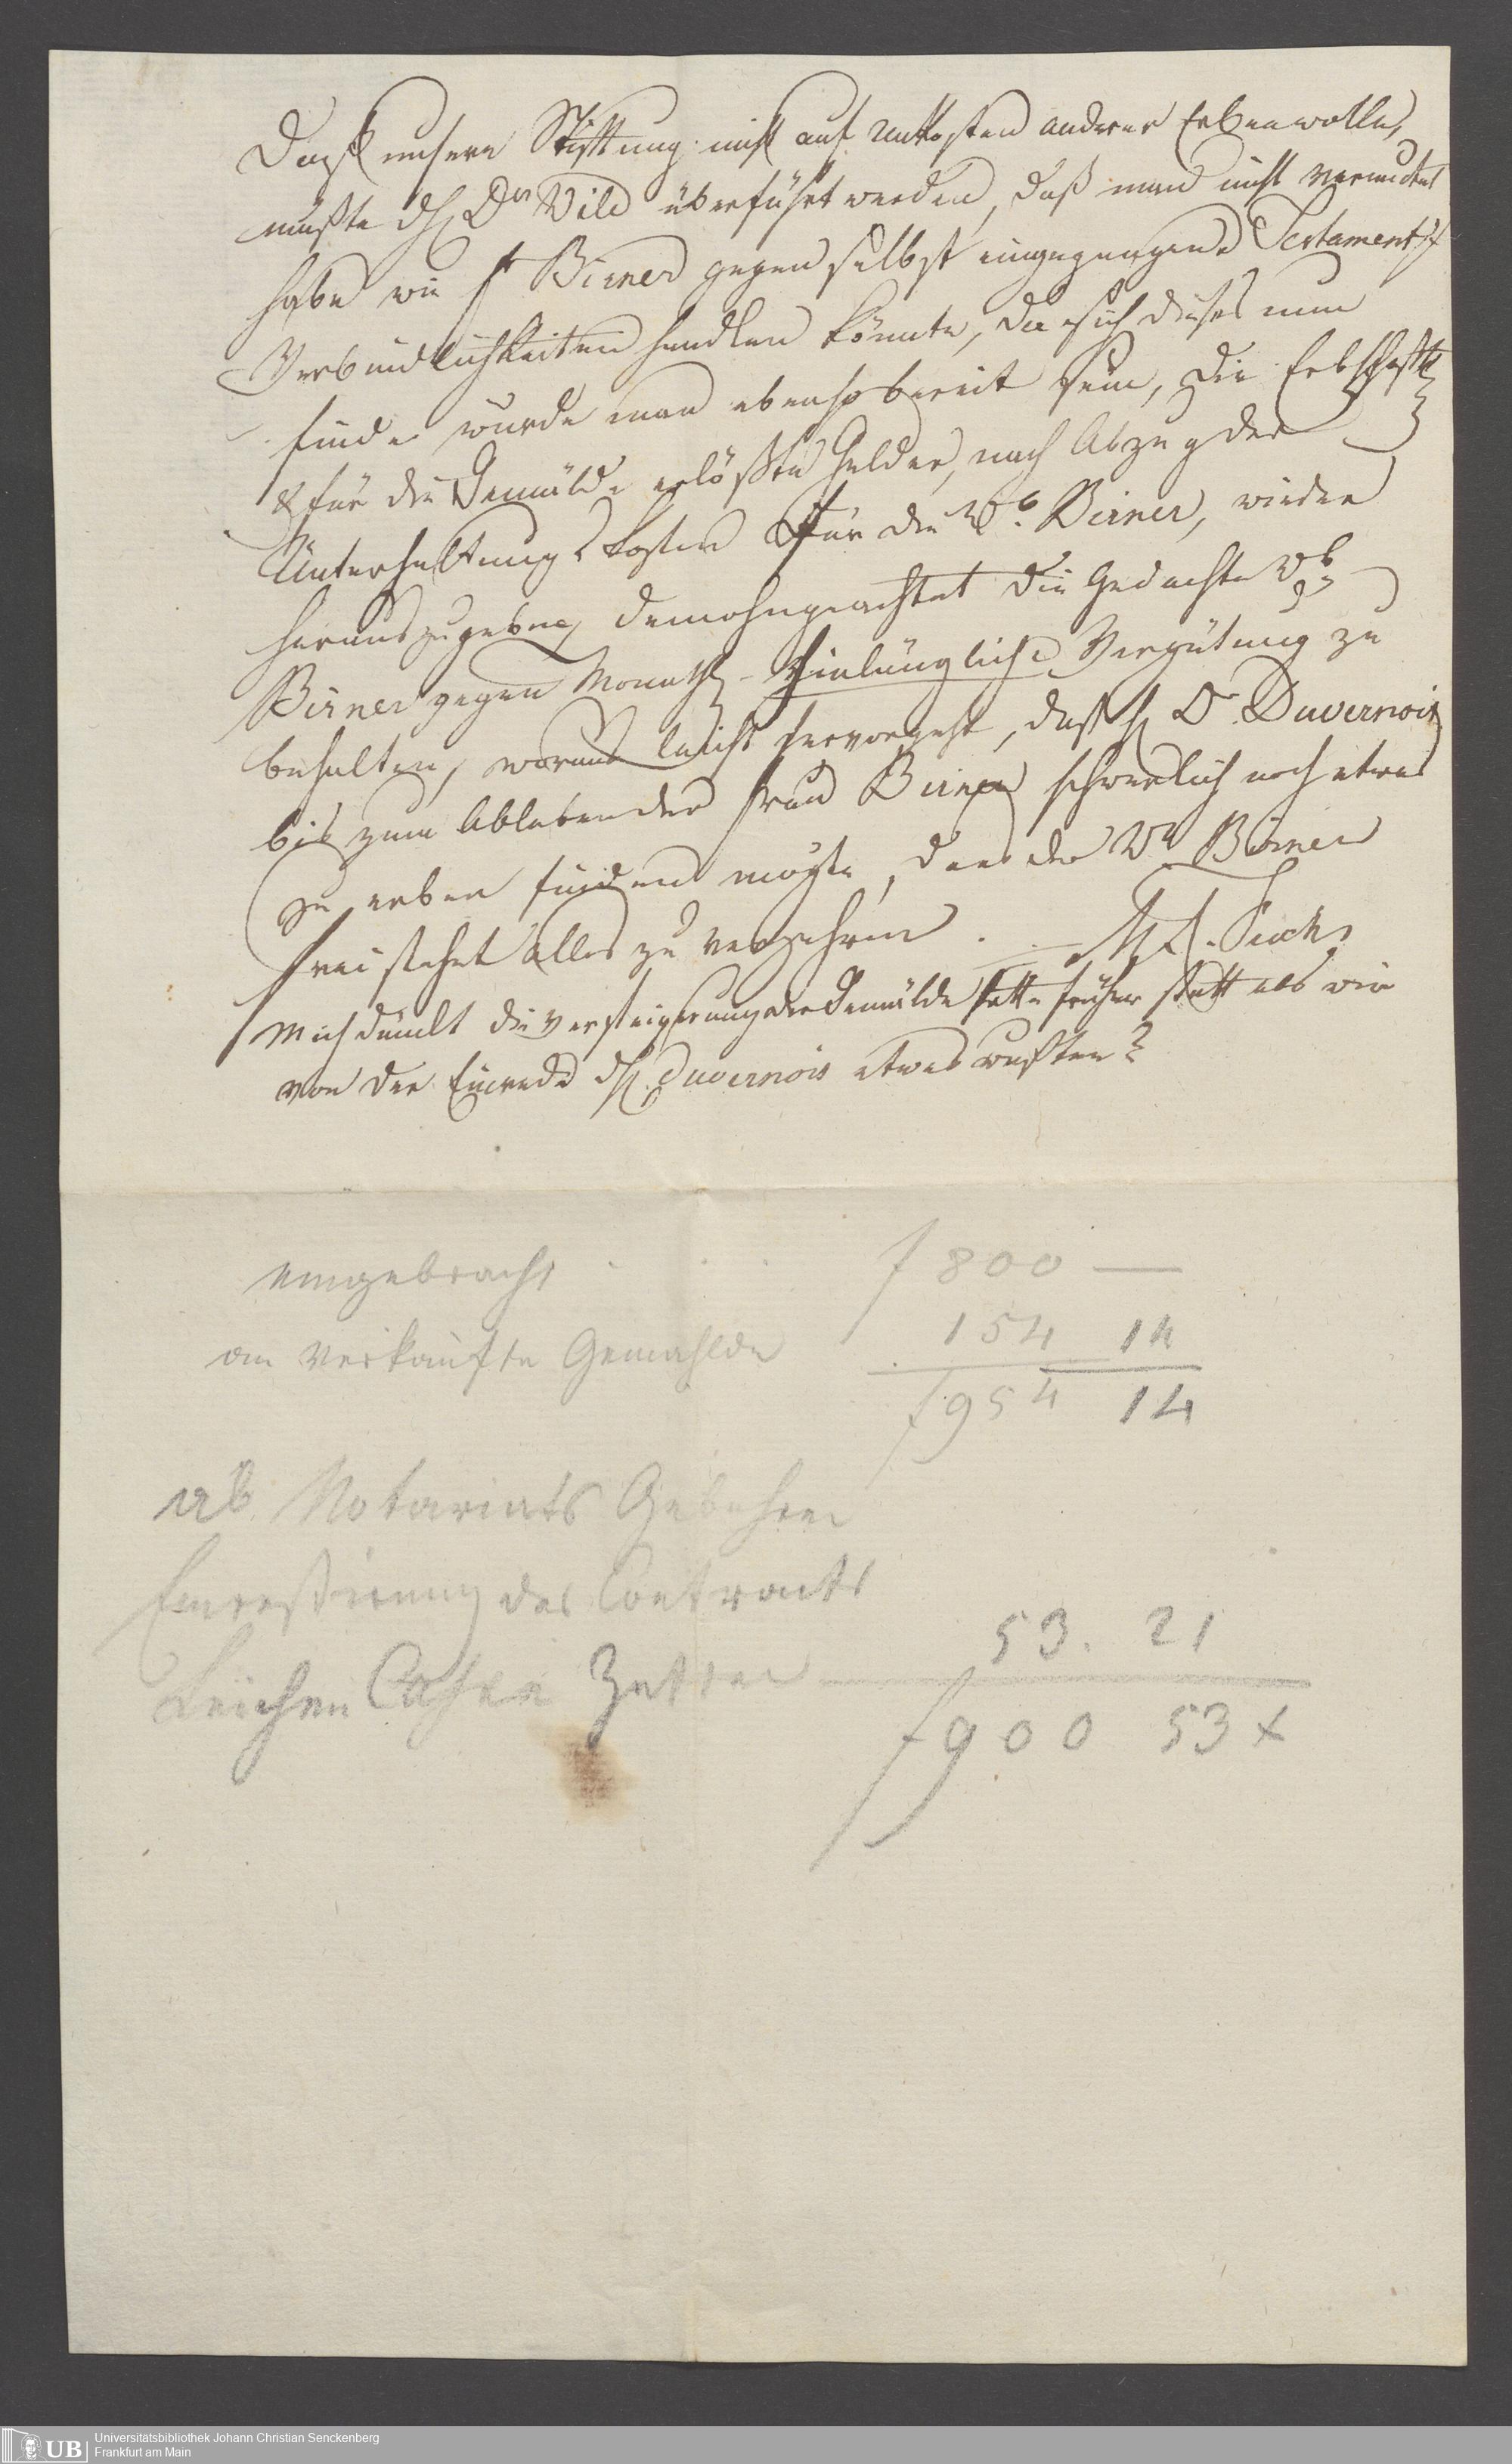 Daß unsere Stifttung nicht auf unkosten anderer Erben wolle,
mußte H. Dr Vild überführt werden, daß man nicht vermuthet
habe wie Fr Birner gegen selbst eingegangene Testaments
Verbindlichkeiten handlen könnte, da sich dieses nun
finde würde man ebenso bereit sein, die Erbschafts
& für die Gemälde erlößte Gelder, nach Abzug der
Unterhaltungs kosten für die Wb. Birner, wieder
herauszugeben, demohngeachtet die Gedachte Wb
Birner gegen Monatl. Hinlängliche Vergütung zu
behalten, woraus leicht hervorgeht, daß H. Dr. Duvernois
bis zum Ableben der Frau Birner schwerlich noch etwas
zu erben finden mögte, denn der Wb Birner
frei stehet alles zu verzehren
Mich dünckt die versteigerung der Gemälde hatte früher statt als wir
von der Einrede H. Duvernois etwas wußten?
eingebracht . . . f 800 —
an verkaufte Gemahlde 154 14
f 954 14
ab. Notariats Gebühren
des Contracts
Leichen Cassen Zettel 53. 21
f 900 53 x
UB Universitätsbibliothek Johann Christian Senckenberg
Frankfurt am Main